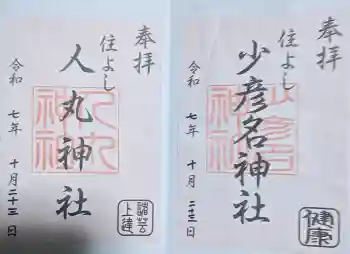 奉拝
住よし
少彦名神社
令和 七年 十月 二十三日
健康
奉拝
住よし
人丸神社
令和 七年 十月 二十三日
諸芸上達
人丸神社